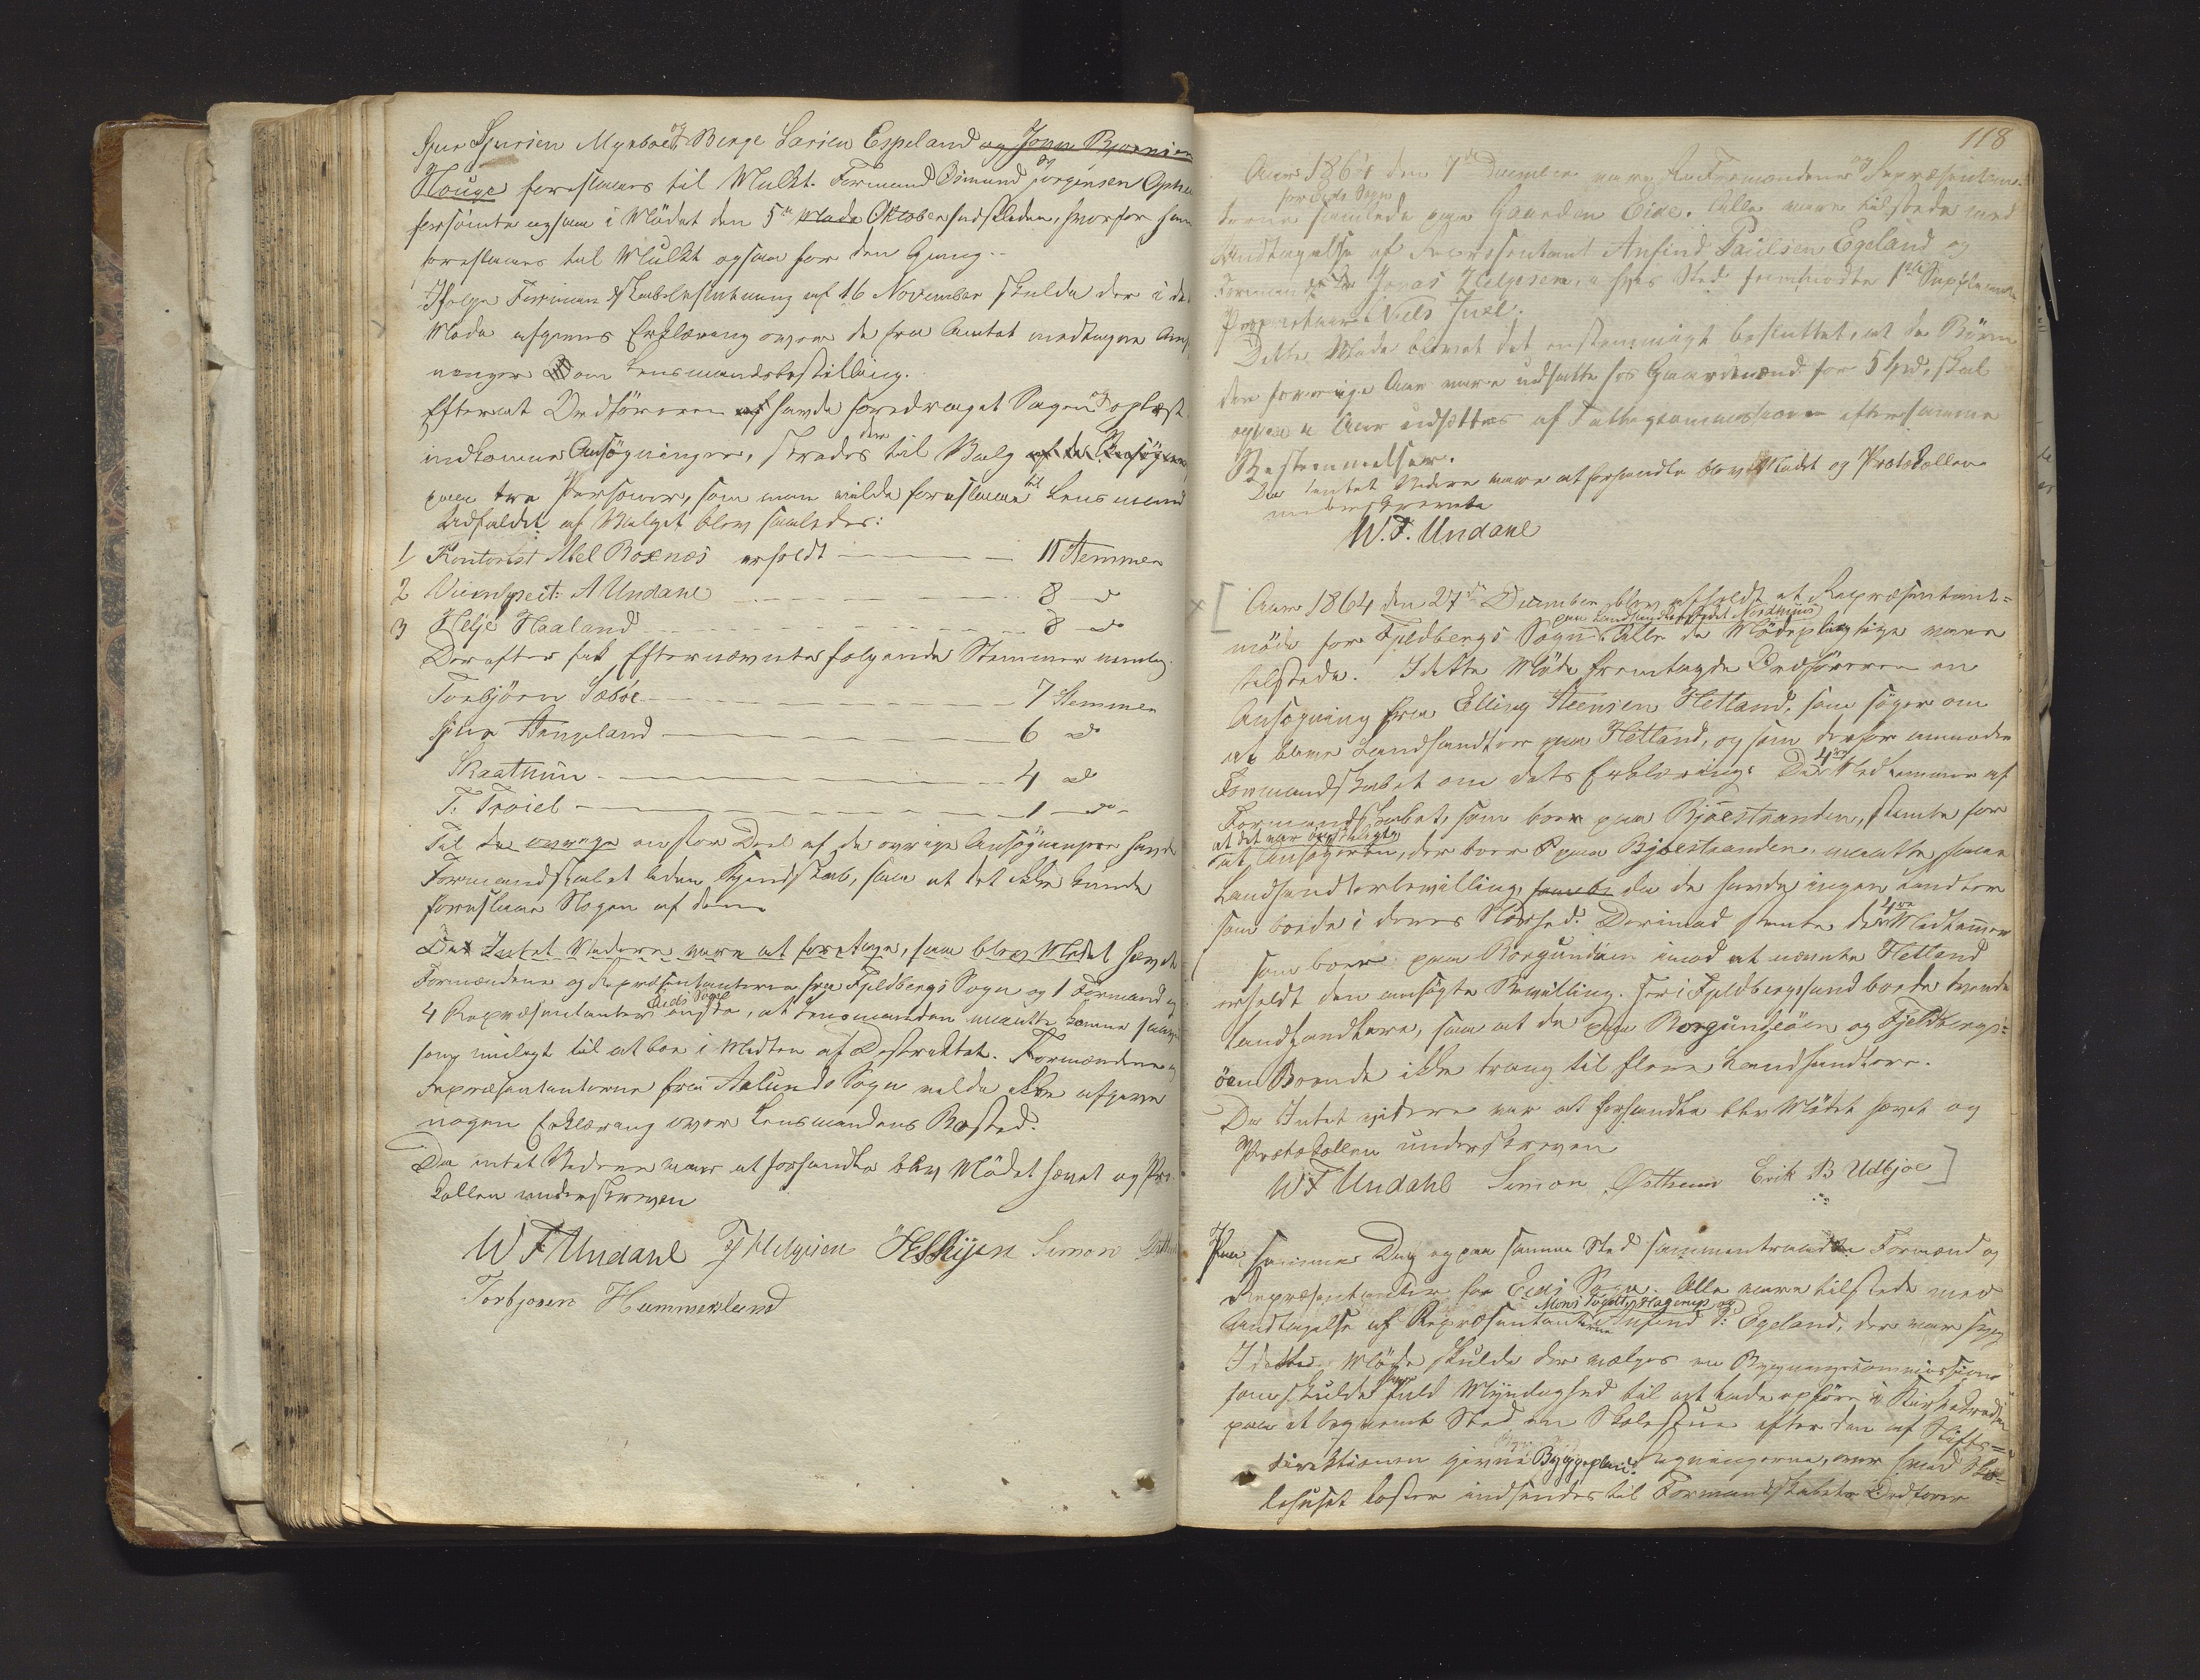 Sjur Sjursen Myrboe og Berge Larsen Espeland og Joen Bjørnsen
Houge foreslaaes til Mulkt. Formand Osmund Jørgensen
forsømte ogsaa i Mødet den 5te Møde Oktober sidstleden, hvorfor han
foreslaaes til Mulkt ogsaa for den Gang.
Ifølge Formandskabsbeslutning af 16 November skulde der i dette
Møde afgives Erklæring over de fra Amtet modtagne Ansøg
ninger om Lensmandsbestilling.
Efterat Ordføreren havde foredraget Sagen og oplæst
indkomne Ansøgninger, skredes der til Valg af de Ansøgere
paa tre Personer, som man vilde foreslaae til Lensmand
Udfaldet af Valget blev saaledes:
1 Kontorist Abel Boxnæs erholdt 11 Stemmer
2 Viceinspect: A Undahl 8 do
3 Helje Haaland 8 do
Derefter fik Efternævnte følgende Stemmer nemlig
Torbjörn Sæboe 7 Stemmer
Sjur Stangeland 6 do
Skaatun 4 do
T. Troiel 1 do
Til de øvrige en stor Deel af de øvrige Ansøgninger havde
Formandskabet uden Kjendskab, saa at det ikke kunde
foreslaae Nogen af dem
Da Intet Videre var at foretage, saa blev Mødet hævet
Formændene og Repræsentanterne fra Fjeldbergs Sogn og 1 Formand og
4 Repræsentanter Eids Sogn ønskte, at Lensmanden maatte komme saavidt
som muligt til at boe i Midten af Distriktet. Formændene og
Repræsentanterne fra Aalunds Sogn vilde ikke afgive
nogen Erklæring over Lensmandens Bosted.
Da intet Videre var at forhandle blev Mødet hævet og Pro
kollen underskreven
W F Undahl J Helgesen Simon
Torbjoren Hammerslund
118
Aar 1864 den 7de December vare Formændene og Repræsentan-
for Eids Sogn
terne samlede paa Gaarden Eide. Alle vare tilstede med
Undtagelse af Repræsentant Anfind Paulsen Egeland og
Formand Jonas Helgesen, i hvis Sted fremmødte 1ste Supleant
Proprietair Niels Juel.
Dette Møde blevet det enstemmigt besluttet, at de Børn
der forrige Aar vare udsatte hos Gaardmænd for 5 Spd, skal
ogsaa i Aar udsættes af Fattigcommissionen efter samme
Bestemmelser.
Da Intet Videre vare at forhandle blev Mødet og Protokollen
underskrevet
W. F. Undahl
Aar 1864 den 27de December blev afholdt et Repræsentant-
paa Landhandlerstedet Nordhuus
møde for Fjeldbergs Sogn. Alle de Mødepligtige vare
tilstede. I dette Møde fremlagde Ordføreren en
Ansøgning fra Elling Steensen Hetland, som søger om
at blive Landhandler paa Hetland, og som derfor anmoder
Formandskabet om dets Erklæring. De 4re Medlemmer af
Formandskabet, som boer paa Bjoestranden, stemte for
at det var ønskeligt
at Ansøgeren, der boer paa Bjoestranden, maatte faae
Landhandlerbevilling, da de havde ingen Landhandler
som boede i deres Nærhed. Derimod stemte de 4re Medlemmer
som boer paa Borgundøen imod at nævnte Hetland
erholdt den ansøgte Bevilling. For i Fjeldbergsund boede tvende
Landhandlere, saa at de paa Borgundøen og Fjeldbergs-
øen Boende ikke trang til flere Landhandlere.
Da Intet videre var at forhandle blev Mødet hævet og
Protokollen underskreven
W F Undahl Simon Østhuus Erik B Udbjoe
Paa samme Dag og paa samme Sted sammentraadte Formænd og
Repræsentanter for Eids Sogn. Alle vare tilstede med
Mons Hagerup og
Undtagelse af Repræsentanterne Anfind P: Egeland, der var syg
I dette Møde skulde der vælges en Bygningscommission
som skulde have fuld Myndighed til at lade opføre i Kirkekredsen
paa et beqvemt Sted en Skolestue efter den af Stifts-
direktionen givne Byggeplan. Regningerne, over hvad Sko-
lehuset koster indsendes til Formandskabets Ordfører